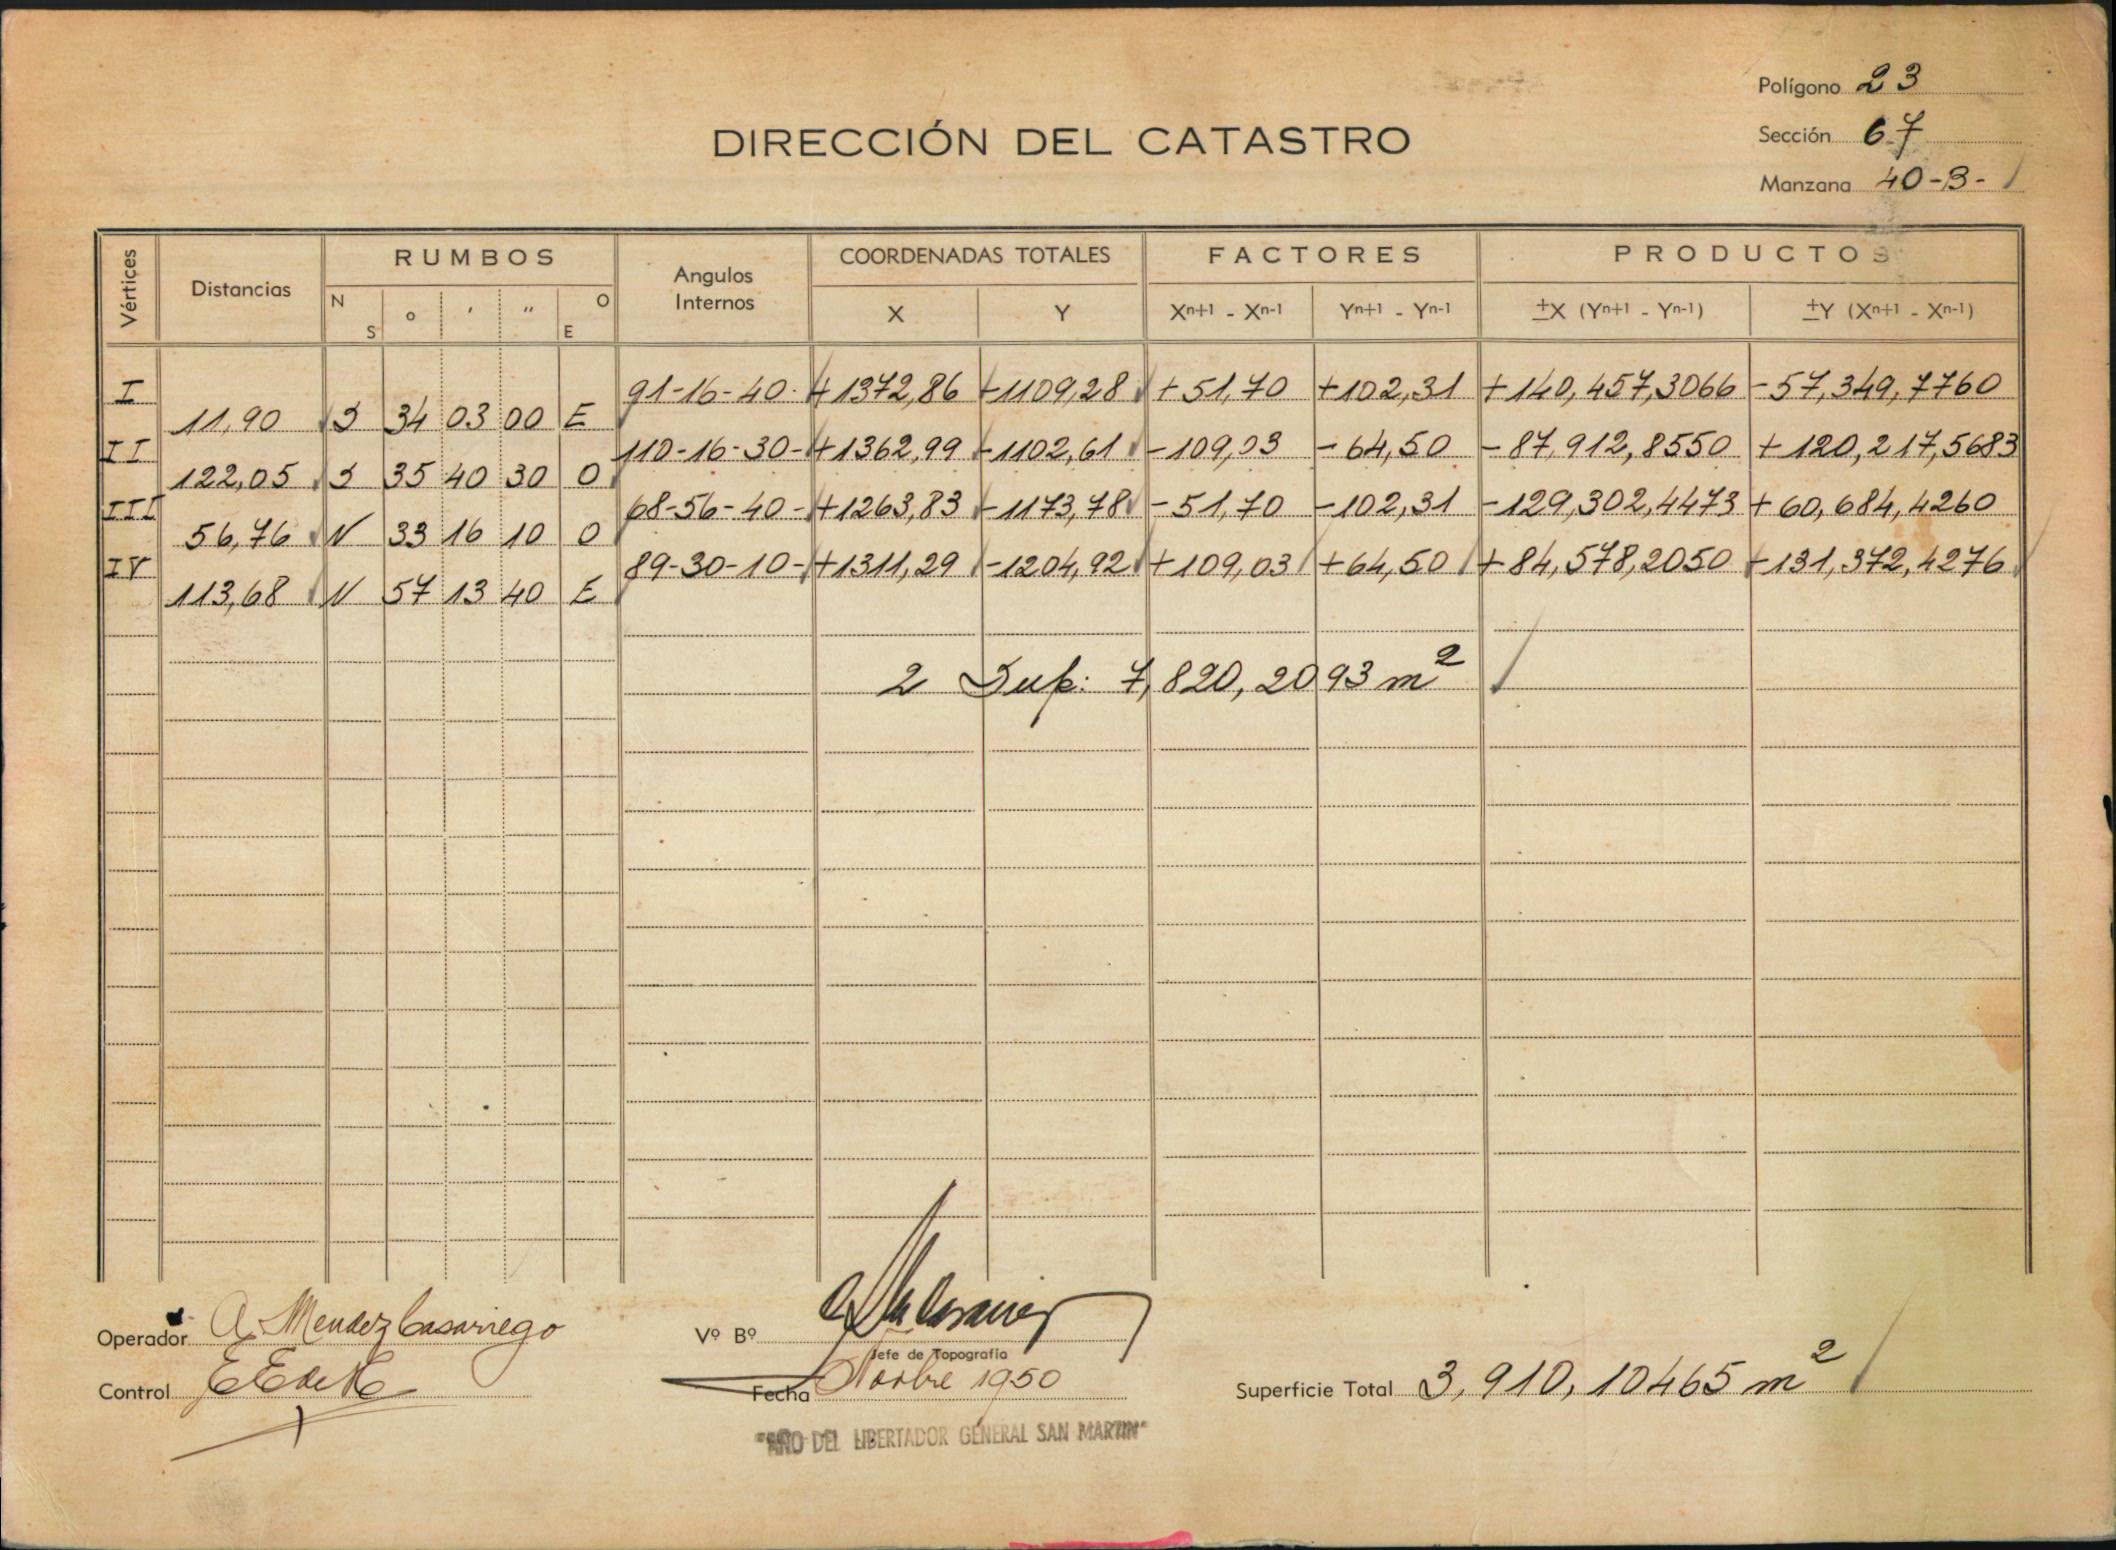 Polígono 23
Sección 67
Manzana 40-B-
DIRECCIÓN DEL CATASTRO
Vértices Distancias RUMBOS Angulos Internos COORDENADAS TOTALES FACTORES PRODUCTOS
N S o ' '' O E X Y Xn+1 - Xn-1 Yn+1 - Yn-1 ±X (Yn+1 - Yn-1) ±Y (Xn+1 - Xn-1)
I 91-16-40- +1372,86 -1109,28 +51,70 +102,31 +140,457,3066 -57,349,7760
11,90 S 34 03 00 E
II 110-16-30- +1362,99 -1102,61 -109,03 -64,50 -87,912,8550 +120,217,5683
122,05 S 35 40 30 O
III 68-56-40- +1263,83 -1173,78 -51,70 -102,31 -129,302,4473 +60,684,4260
56,76 N 33 16 10 O
IV 89-30-10- +1311,29 -1204,92 +109,03 +64,50 +84,578,2050 -131,372,4276
113,68 N 57 13 40 E
2 Sup: 7,820,2093 m²
Operador A. Mendez Casariego
Vº Bº
Jefe de Topografía
Control
Fecha Novbre 1950
Superficie Total 3,910,10465 m²
"AÑO DEL LIBERTADOR GENERAL SAN MARTIN"